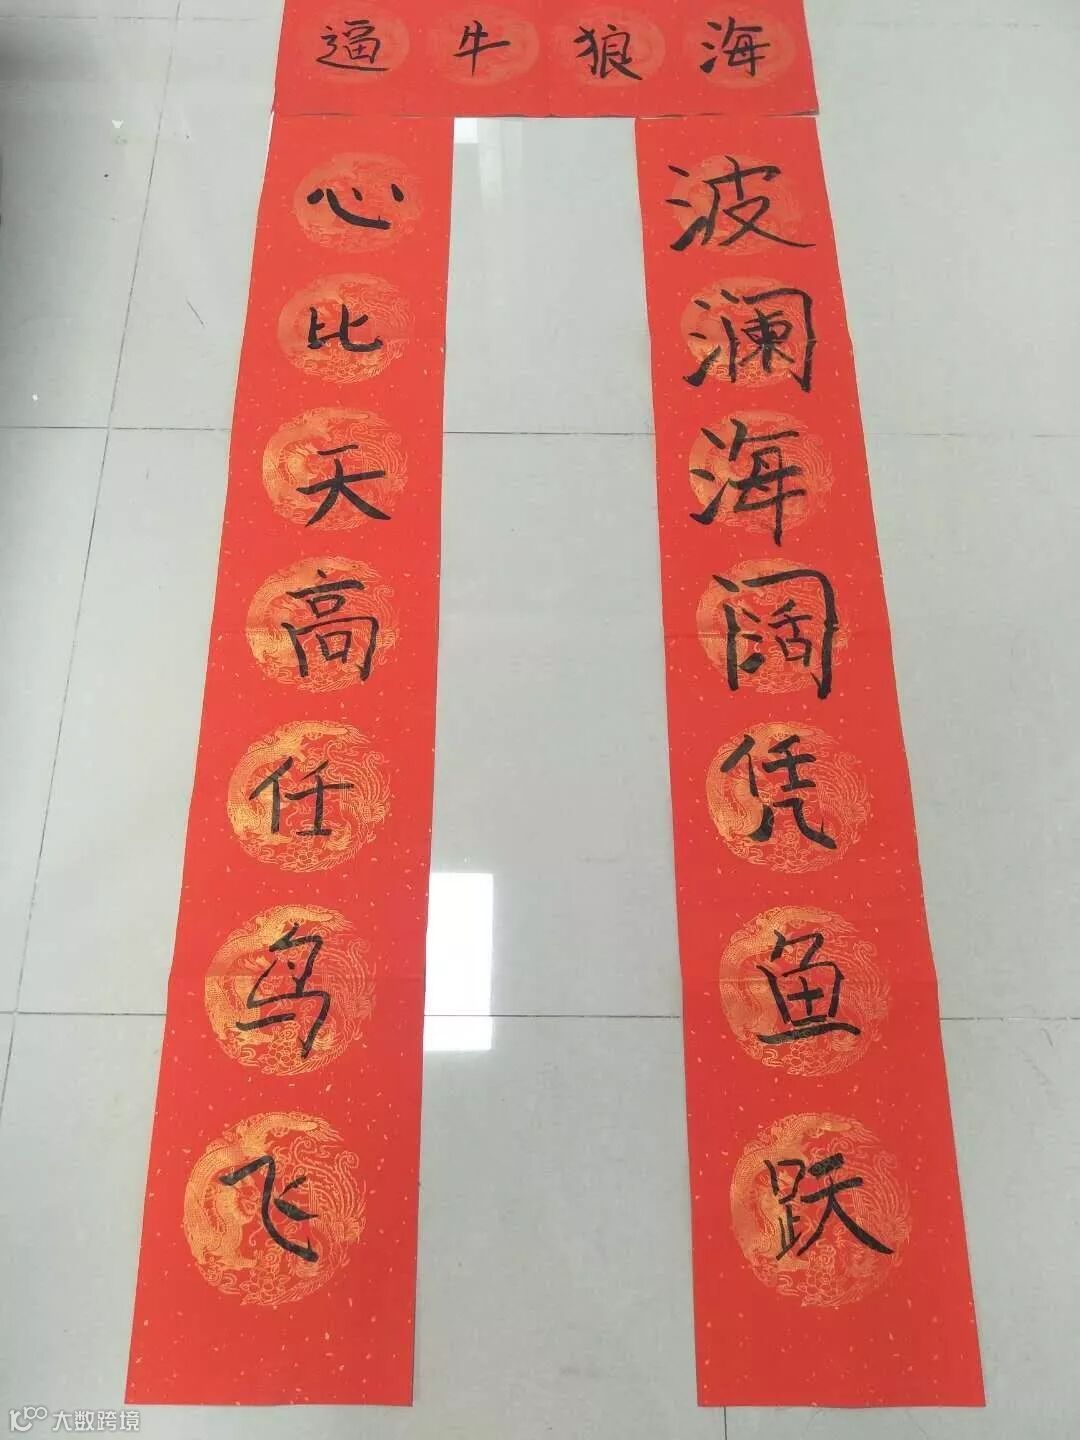 海狼牛逼
波澜海阔凭鱼跃
心比天高任鸟飞
大数跨境